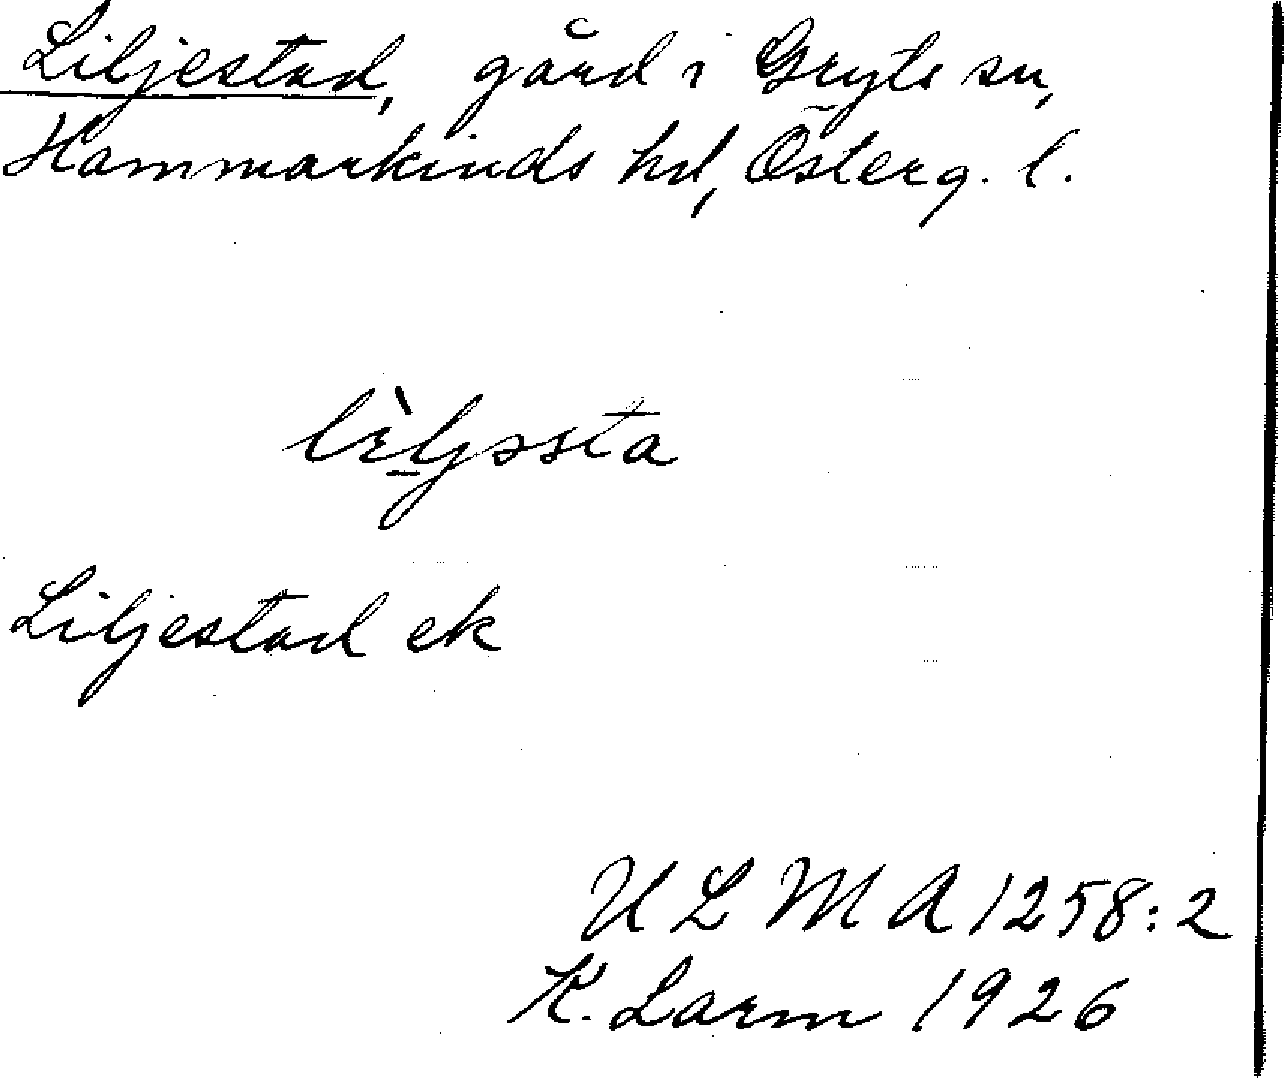 Liljestad, gård i Gryts sn,
Hammarkinds hd, Österg. l.
lìljəsta
Liljestad ek
ULMA 1258:2
K. Larm 1926